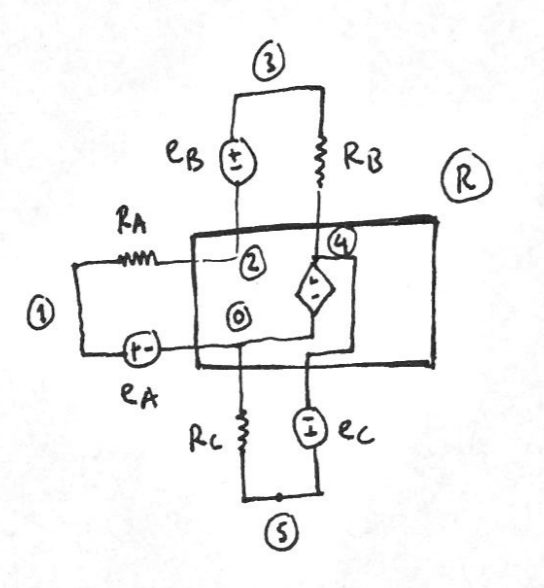 3
eB
RB
R
RA
4
2
1
0
+ -
eA
RC
eC
5